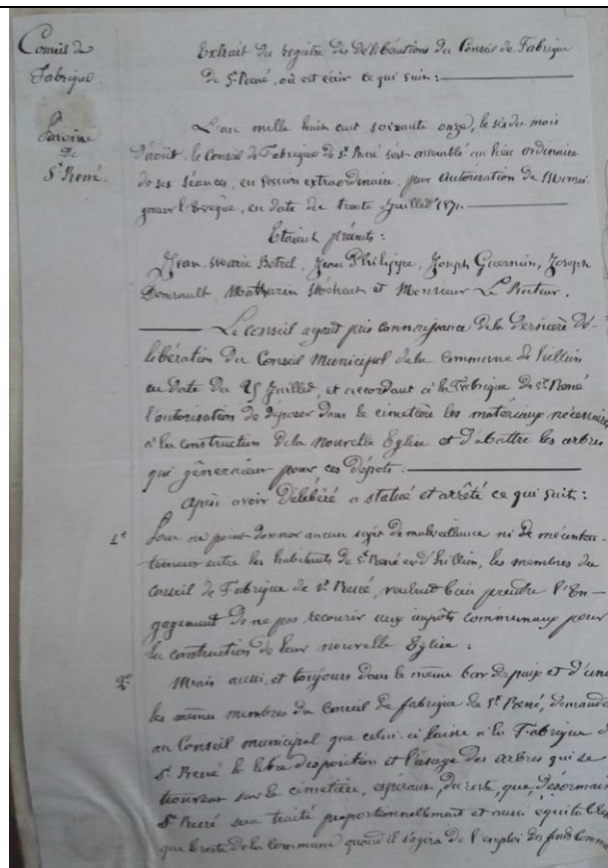 Conseil de
Fabrique
Paroisse
de
St René.
Extrait du registre des délibérations du Conseil de Fabrique
de St René, où est écrit ce qui suit :
L'an mille huit cent soixante onze, le six du mois
d'août, le Conseil de Fabrique de St René s'est assemblé au lieu ordinaire
de ses séances, en session extraordinaire, par autorisation de Monsei
gneur l'Evêque, en date du trente Juillet 1871.
Etaient présents :
Jean-Marie Botrel, Jean Philippe, Joseph Guernion, Joseph
Mathurin et Monsieur Le Recteur.
Le conseil ayant pris connaissance de la dernière dé-
libération du Conseil Municipal de la Commune de hillion
en date du 25 Juillet, et accordant à la Fabrique de St René
l'autorisation de déposer dans le cimetière les matériaux nécessaires
à la construction de la nouvelle Eglise et d'abattre les arbres
qui gêneraient pour ces dépots.
Après avoir délibéré a statué et arrêté ce qui suit :
1° Pour ne point donner aucun sujet de malveillance ni de méconten-
tement entre les habitants de St René et d'hillion, les membres du
Conseil de Fabrique de St René, veulent bien prendre l'En-
gagement de ne pas recourir aux impôts communaux pour
la construction de leur nouvelle Eglise :
2° Mais aussi, et toujours dans le même but de paix et d'uni
les mêmes membres du Conseil de fabrique de St René, demande
au Conseil municipal que celui-ci laisse à la Fabrique d
St René la libre disposition et l'usage des arbres qui se
trouvent sur le cimetière, espérant, du reste, que désormais
St René sera traité proportionnellement et aussi équitable
que le reste de la Commune quand il s'agira de l'emploi des fonds Commu